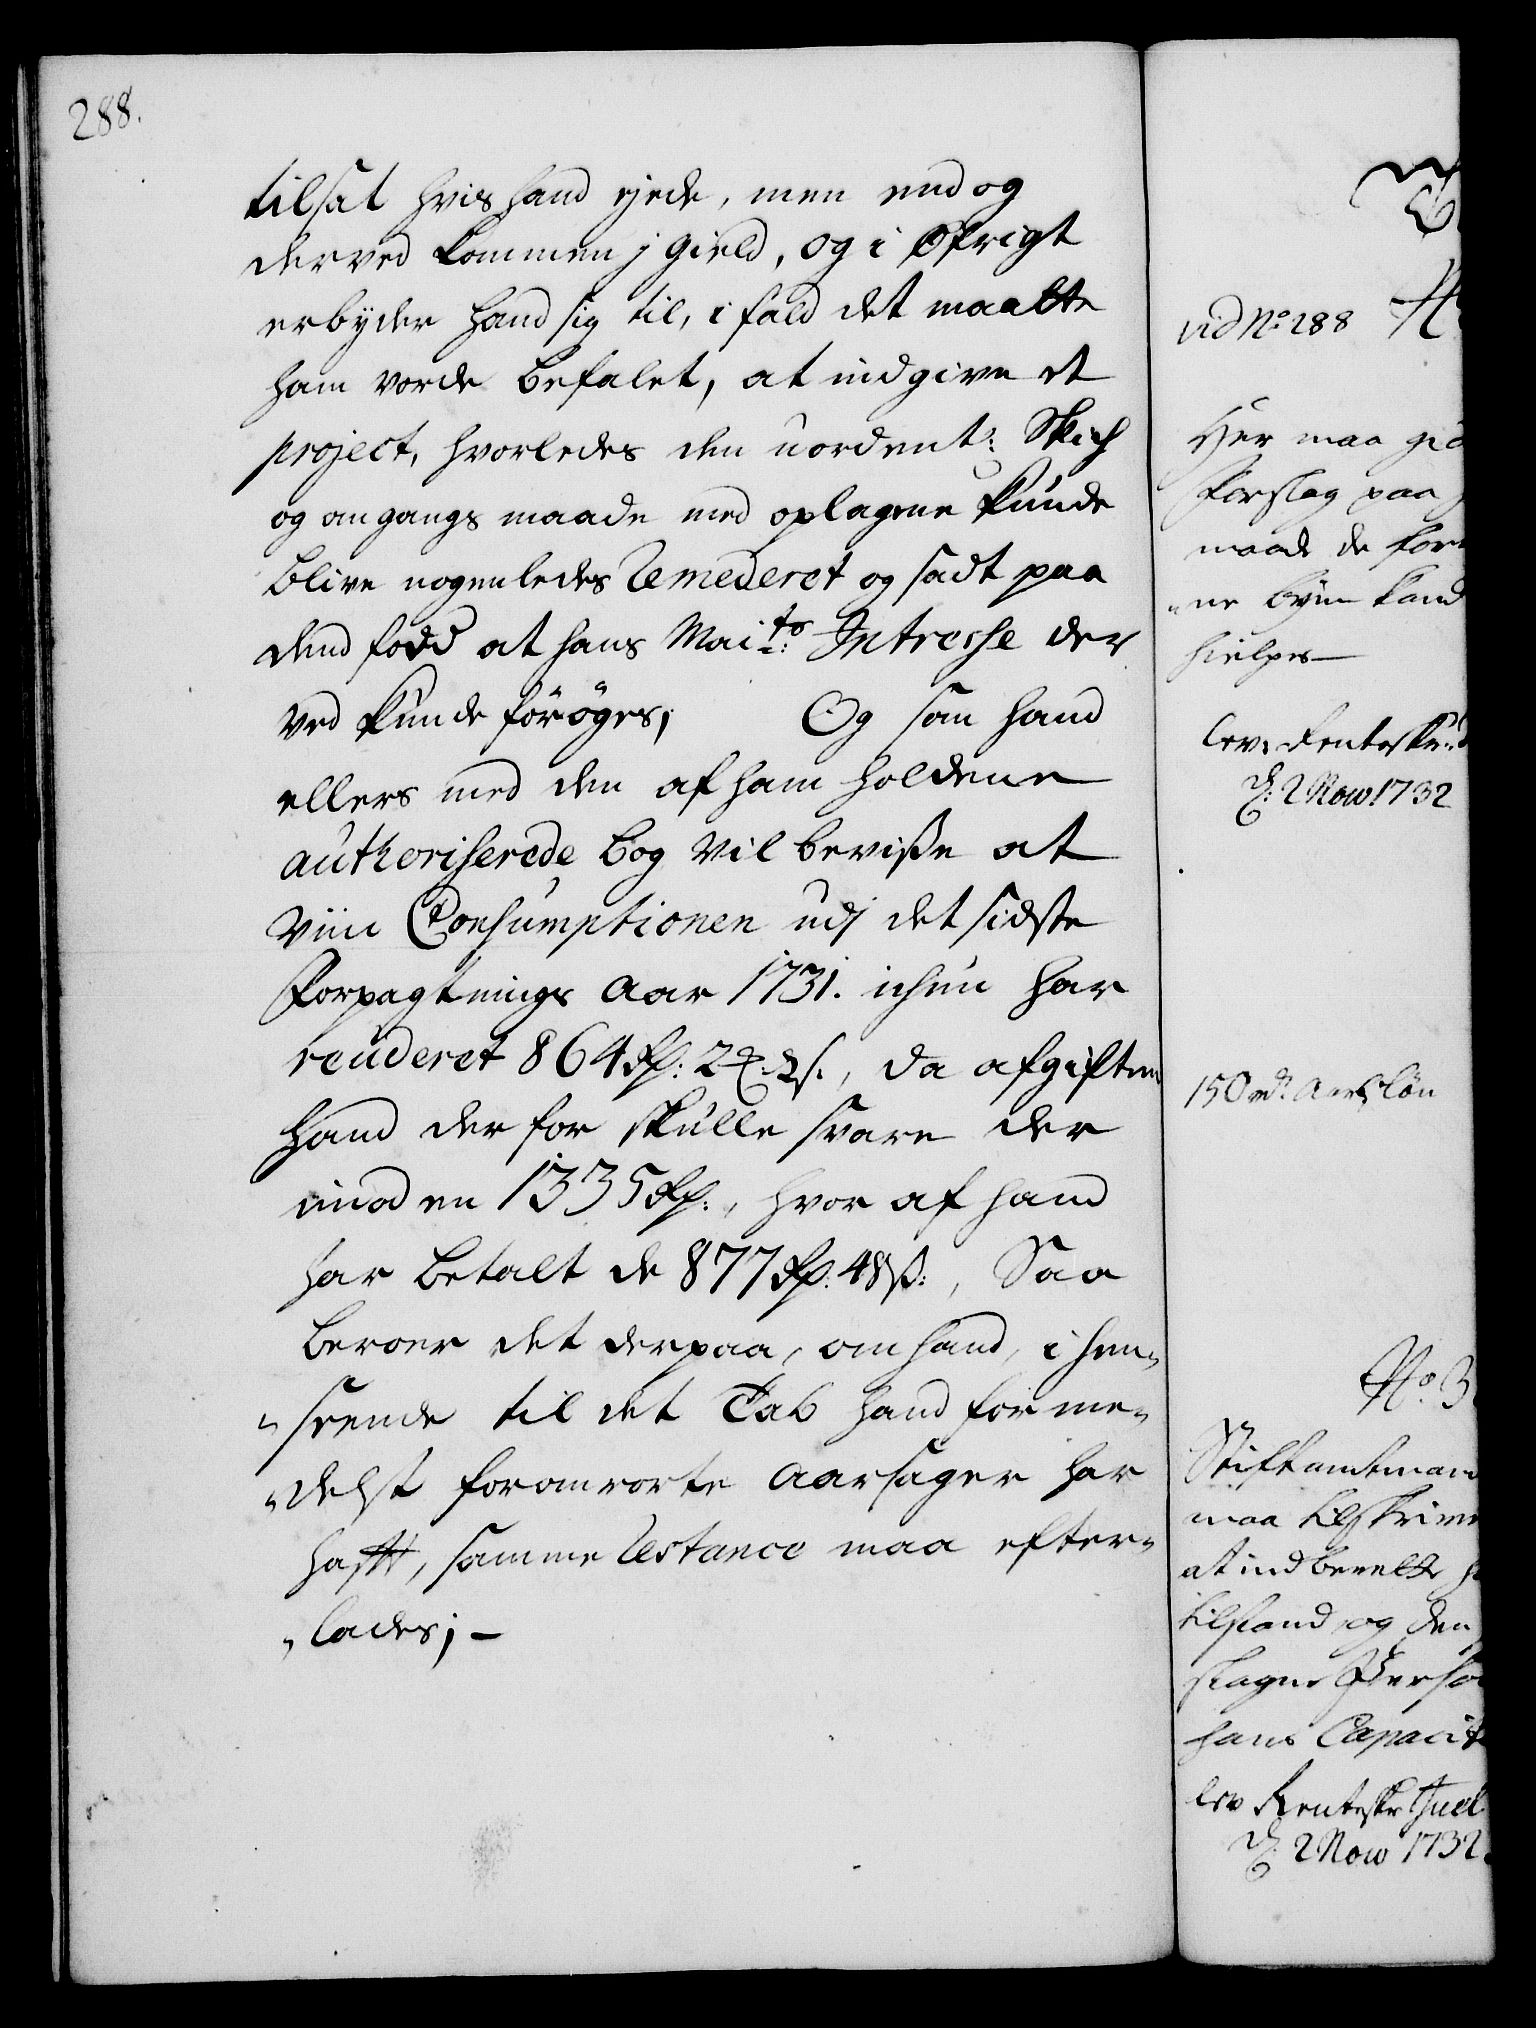 288.
tilsat hvis hand ejede, men end og
derved kommen j Gield, og i Øfrigt
erbyder hand sig til, i fald det maatte
ham vorde befalet, at indgive et
project, hvorledes den uordent: Skich
og omgangs maade med oplagene kunde
blive nogenledes Remederet og sadt paa
dend fodd at hans Mai:ts Intresse der
ved kunde forøges; Og som hand
ellers med den af ham holdene
authoriserede bog vil beviße at
Viin Consumptionen udj det sidste
Forpagtnings Aar 1731. ichun har
renderet 864 Rd: 2 ß., da afgiften
hand der for skulle svare der
imod en 1335 Rd:, hvor af hand
har betalt de 877 Rd: 48 ß:, Saa
beroer det derpaa, om hand, i hen„
„seende til det Tab hand forme„
„delst foranrørte Aarsager har
hafft, samme Restance maa efter„
„lades; –
vid No: 288
Her maa gi
Forslag paa
maade de for
„ne byen kand
hielpes
lev. Renteskr:
d: 2 Nov 1732
150 rd: Aarsløn
No. 3
Stiftamtmand
maa tilskrives
at indberette h
tilstand og den
slagne Perso
hans Capacit
lev Renteskr Juel
d: 2 Nov 1732.